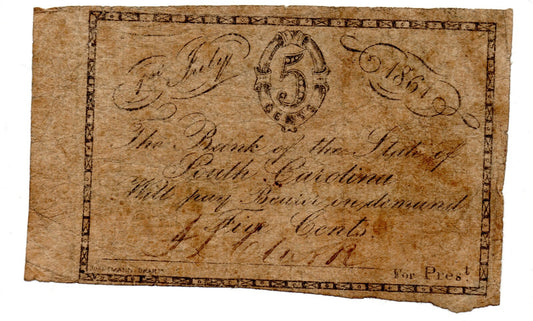 1st July 1861
5
CENTS
The Bank of the State of
South Carolina
Will pay Bearer on demand
Five Cents.
For Pres.t